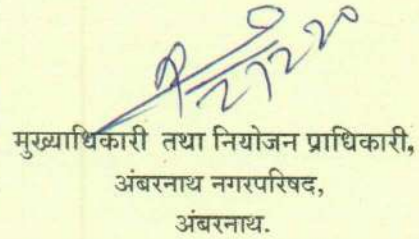 मुख्याधिकारी तथा नियोजन प्राधिकारी,
अंबरनाथ नगरपरिषद,
अंबरनाथ.